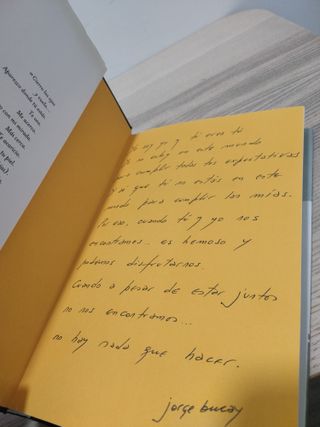 "Cierra los ojos
y verás.
Te veo.
Me acerco.
Más cerca.
Te acaricio.
yo soy yo y tú eres tú
yo no estoy en este mundo
para cumplir todas tus expectativas
y sé que tú no estás en este
mundo para cumplir las mías.
Por eso, cuando tú y yo nos
encontramos, es hermoso y
podemos disfrutarnos.
Cuando a pesar de estar juntos
no nos encontramos...
no hay nada que hacer.
jorge bucay